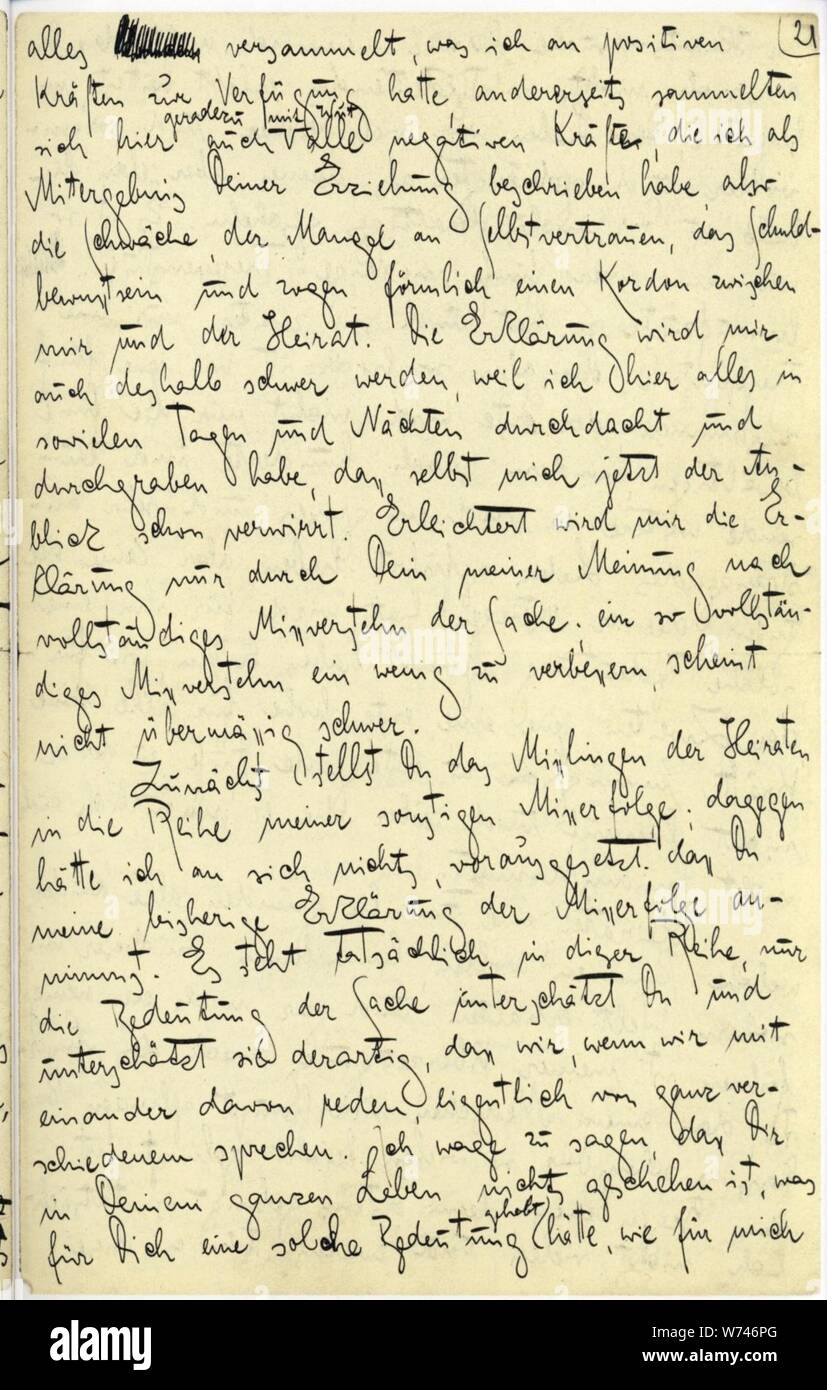 21
alles versammelt, was ich an positiven
Kräften zur Verfügung hatte, andererseits sammelten
geradezu mit Wut
sich hier auch alle negativen Kräfte, die ich als
Mitergebnis Deiner Erziehung beschrieben habe, also
die Schwäche, der Mangel an Selbstvertrauen, das Schuld-
bewusstsein und zogen förmlich einen Kordon zwischen
mir und der Heirat. Die Erklärung wird mir
auch deshalb schwer werden, weil ich hier alles in
sovielen Tagen und Nächten durchdacht und
durchgraben habe, dass selbst mich jetzt der An-
blick schon verwirrt. Erleichtert wird mir die Er-
klärung nur durch Dein meiner Meinung nach
vollständiges Missverstehn der Sache; ein so vollstän-
diges Missverstehn ein wenig zu verbessern, scheint
nicht übermässig schwer.
Zunächst stellst Du das Misslingen der Heiraten
in die Reihe meiner sonstigen Misserfolge; dagegen
hätte ich an sich nichts, vorausgesetzt, dass Du
meine bisherige Erklärung der Misserfolge an-
nimmst. Es steht tatsächlich in dieser Reihe, nur
die Bedeutung der Sache unterschätzt Du und
unterschätzt sie derartig, dass wir, wenn wir mit
einander davon reden, eigentlich von ganz ver-
schiedenem sprechen. Ich wage zu sagen, dass Dir
in Deinem ganzen Leben nichts geschehen ist, was
gehabt
für Dich eine solche Bedeutung hätte, wie für mich
alamy
Image ID: W746PG
www.alamy.com